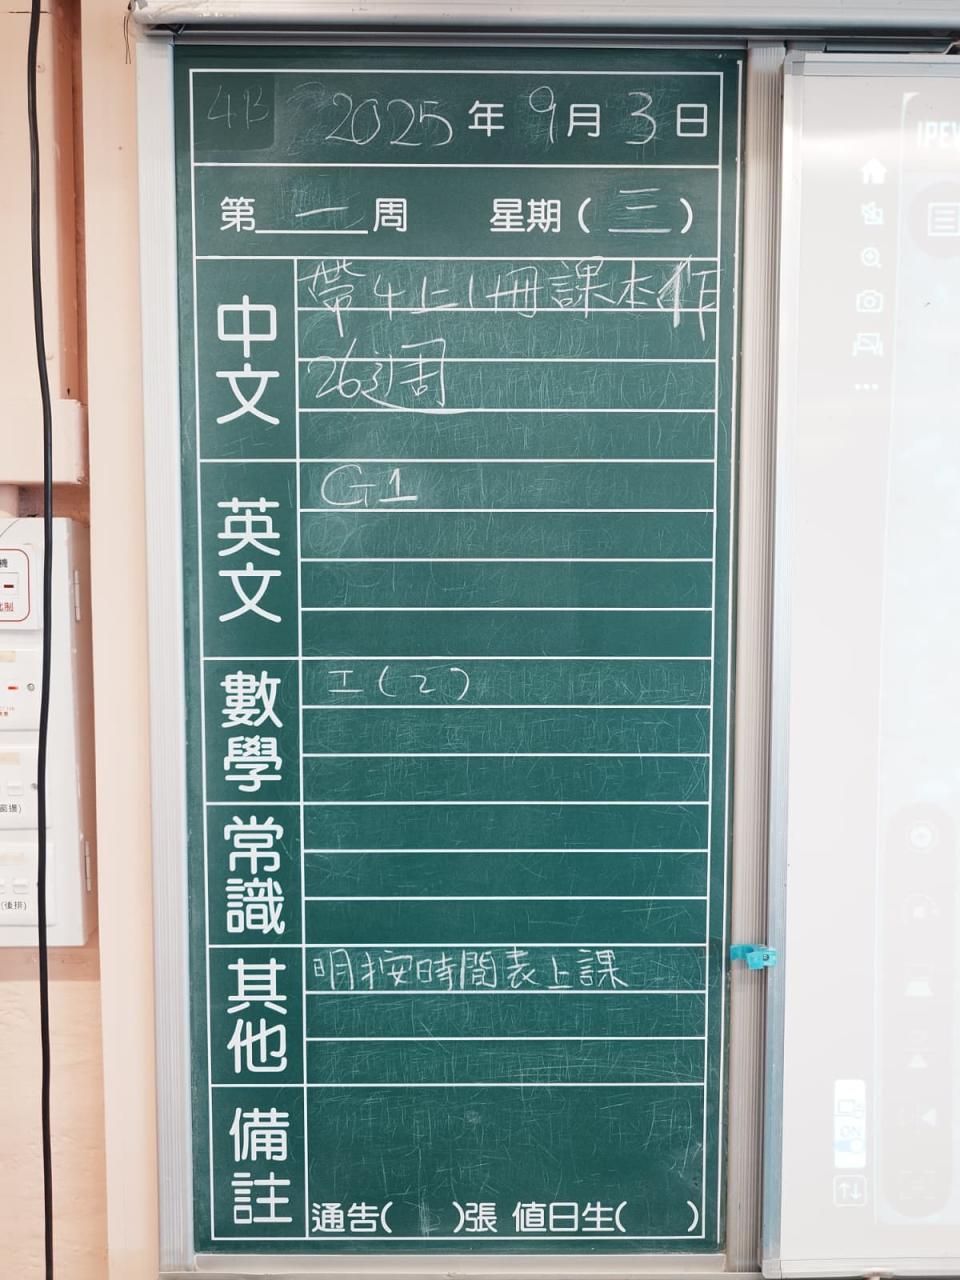 4B 2025年9月3日
第一周 星期(三)
中文
帶4上1冊課本作
26週
英文
G1
數學
工(2)
常識
其他
明按時間表上課
備註
通告( )張 值日生( )
IPEV
ON
(後排)